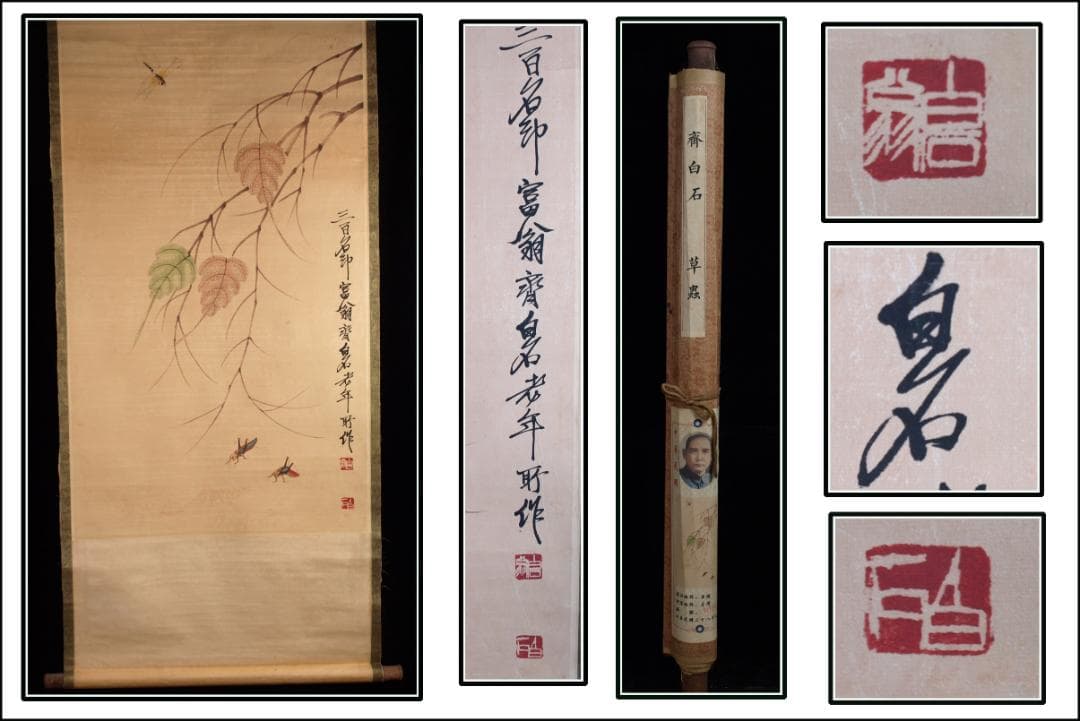 三百石印富翁齊白石老年時作
三百石印富翁齊白石老年時作
齊白石 草蟲
白石
白石